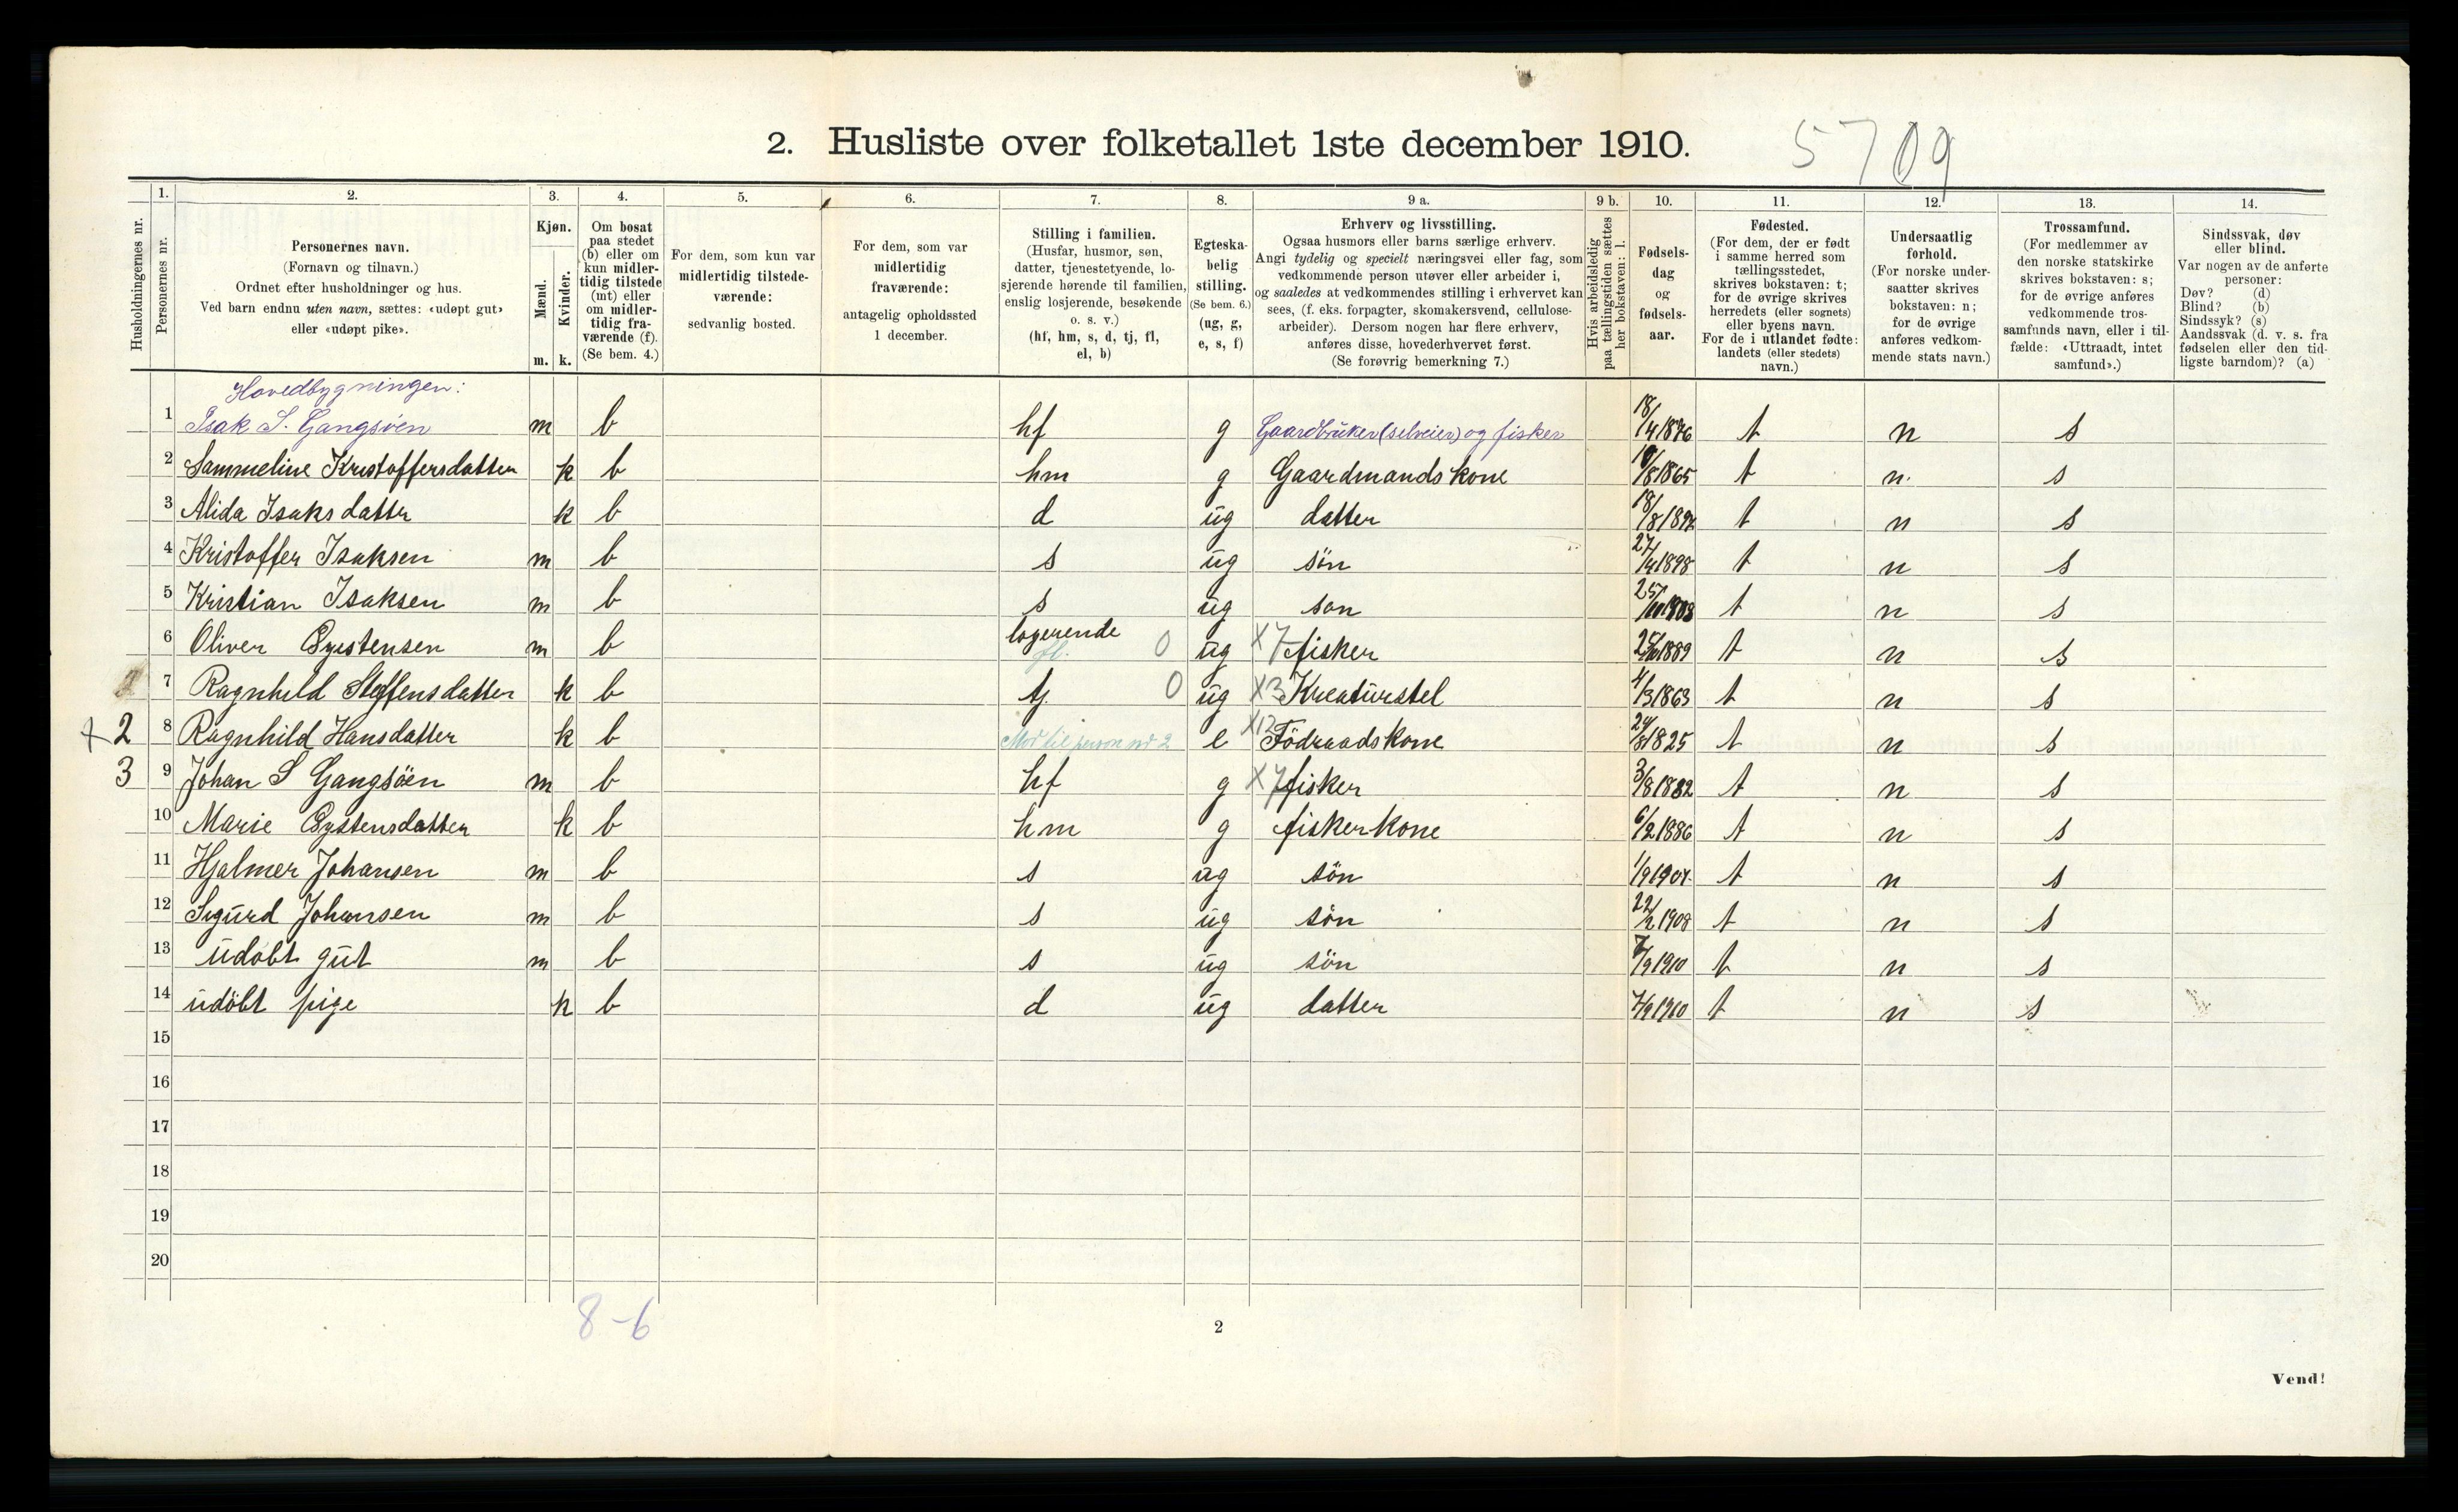 2. Husliste over folketallet 1ste december 1910.
5709
Husholdningernes nr.
1. Personernes nr.
2. Personernes navn.
(Fornavn og tilnavn.)
Ordnet efter husholdninger og hus.
Ved barn endnu uten navn, sættes: «udøpt gut»
eller «udøpt pike».
3. Kjøn.
Mænd. Kvinder.
m. k.
4. Om bosat
paa stedet
(b) eller om
kun midler-
tidig tilstede
(mt) eller
om midler-
tidig fra-
værende (f).
(Se bem. 4.)
5. For dem, som kun var
midlertidig tilstede-
værende:
sedvanlig bosted.
6. For dem, som var
midlertidig
fraværende:
antagelig opholdssted
1 december.
7. Stilling i familien.
(Husfar, husmor, søn,
datter, tjenestetyende, lo-
sjerende hørende til familien,
enslig losjerende, besøkende
o. s. v.)
(hf, hm, s, d, tj, fl,
el, b)
8. Egteska-
belig
stilling.
(Se bem. 6.)
(ug, g,
e, s, f)
9 a. Erhverv og livsstilling.
Ogsaa husmors eller barns særlige erhverv.
Angi tydelig og specielt næringsvei eller fag, som
vedkommende person utøver eller arbeider i,
og saaledes at vedkommendes stilling i erhvervet kan
sees, (f. eks. forpagter, skomakersvend, cellulose-
arbeider). Dersom nogen har flere erhverv,
anføres disse, hovederhvervet først.
(Se forøvrig bemerkning 7.)
9 b. Hvis arbeidsledig
paa tællingstiden sættes
her bokstaven: l.
10. Fødsels-
dag
og
fødsels-
aar.
11. Fødested.
(For dem, der er født
i samme herred som
tællingsstedet,
skrives bokstaven: t;
for de øvrige skrives
herredets (eller sognets)
eller byens navn.
For de i utlandet fødte:
landets (eller stedets)
navn.)
12. Undersaatlig
forhold.
(For norske under-
saatter skrives
bokstaven: n;
for de øvrige
anføres vedkom-
mende stats navn.)
13. Trossamfund.
(For medlemmer av
den norske statskirke
skrives bokstaven: s;
for de øvrige anføres
vedkommende tros-
samfunds navn, eller i til-
fælde: «Uttraadt, intet
samfund».)
14. Sindssvak, døv
eller blind.
Var nogen av de anførte
personer:
Døv? (d)
Blind? (b)
Sindssyk? (s)
Aandssvak (d. v. s. fra
fødselen eller den tid-
ligste barndom)? (a)
Hovedbygningen:
1 Isak S. Gangsöen m b hf g Gaardbruker (selveier) og fisker 18/4 1876 t n s
2 Sammeline Kristoffersdatter k b hm g Gaardmandskone /8 1865 t n. s
3 Alida Isaksdatter k b d ug datter 18/8 t n s
4 Kristoffer Isaksen m b s ug sön 27/4 1898 t n s
5 Kristian Isaksen m b s ug son 25/ t n s
6 Oliver Oystensen m b logerende fl. 0 ug X7 fisker 1889 t n s
7 Ragnhild Steffensdatter k b tj. 0 ug X3 Kreaturstel 4/3 1863 t n s
X 2 8 Ragnhild Hansdatter k b Mor til person nr 2 e X12 Födraadskone 24/8 1825 t n s
3 9 Johan S Gangsöen m b hf g X7 fisker 3/8 1882 t n s
10 Marie Oystensdatter k b hm g fiskerkone 6/2 1886 t n s
11 Hjalmer Johansen m b s ug sön 1/9 1907 t n s
12 Sigurd Johansen m b s ug sön 22/2 1908 t n s
13 udöbt gut m b s ug sön 7/9 1910 t n s
14 udöbt pige k b d ug datter 7/9 1910 t n s
15
16
17
18
19
20
8-6
2
Vend!